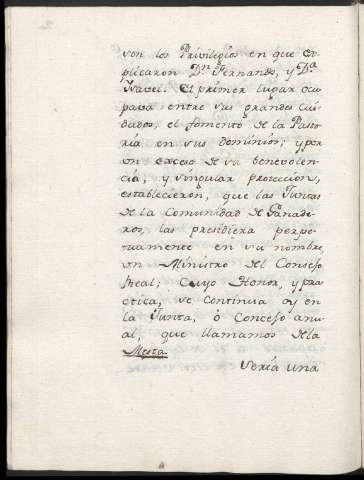 von los Privilegios en que ex
plicaron Dn. Fernando, y Da.
Ysavel. El primer lugar ocu
pava entre sus grandes cui
dados, el fomento de la Pasto
ría en sus dominios; y por
un exceso de su benevolen
cia, y singular proteccion,
establecieron, que las Juntas
de la Comunidad de Ganade
ros, las presidiera perpe
tuamente en su nombre,
un Ministro del Consejo
Real; Cuyo Honor, y prac
tica, se continua oy en
la Junta, ò Concejo anu
al, que llamamos de la
Mesta.
Sería una